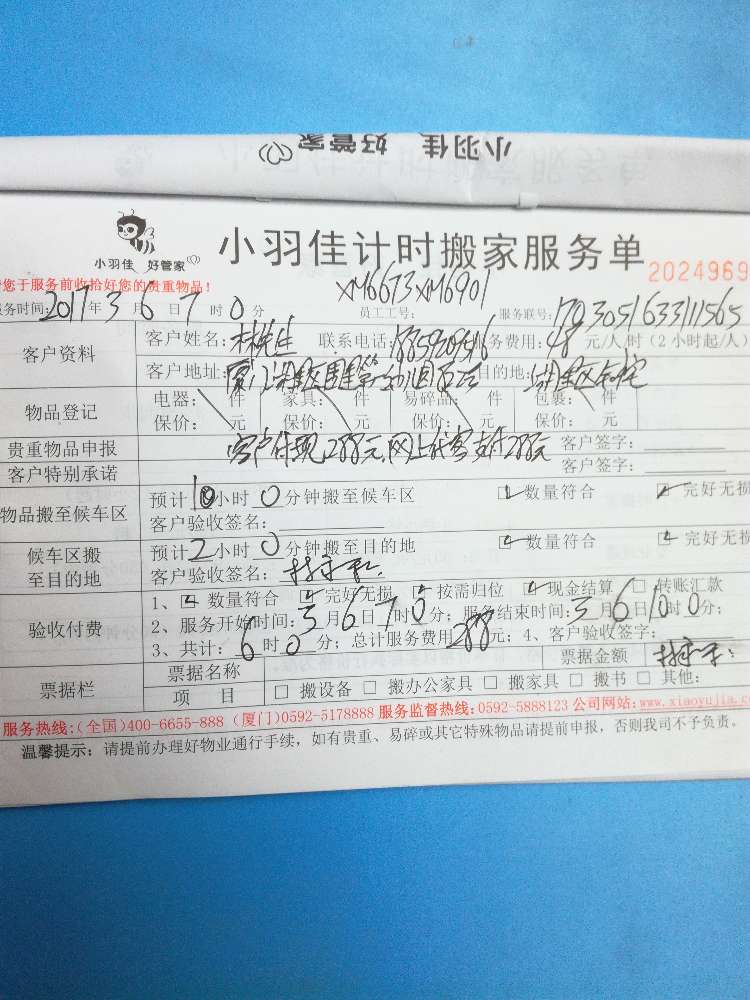 小羽佳 好管家
小羽佳 好管家
小羽佳计时搬家服务单
2024969
您于服务前收拾好您的贵重物品!
XM6673 XM6901
服务时间: 2017年3月6日7时0分 员工工号: 服务联号: 1703051633111565
客户资料
客户姓名: 林先生 联系电话: 务费用: 48元/人/时(2小时起/人)
客户地址: 目的地:
物品登记
电器: 件 家具: 件 易碎品: 件 包裹: 件
保价: 元 保价: 元 保价: 元 保价: 元
贵重物品申报 客户签字:
客户付现288元,网上代客支付288元
客户特别承诺 客户签字:
物品搬至候车区
预计1小时0分钟搬至候车区 数量符合 完好无损
客户验收签名:
候车区搬至目的地
预计2小时0分钟搬至目的地 数量符合 完好无损
客户验收签名:
验收付费
1、数量符合 完好无损 按需归位 现金结算 转账汇款
2、服务开始时间: 3月6日7时0分; 服务结束时间: 3月6日10时0分;
3、共计: 6时0分; 总计服务费用288元; 4、客户验收签字:
票据栏
票据名称 票据金额
项 目 搬设备 搬办公家具 搬家具 搬书 其他:
服务热线:(全国)400-6655-888 (厦门)0592-5178888 服务监督热线:0592-5888123 公司网站:www.xiaoyujia.c
温馨提示: 请提前办理好物业通行手续, 如有贵重、易碎或其它特殊物品请提前申报, 否则我司不予负责。